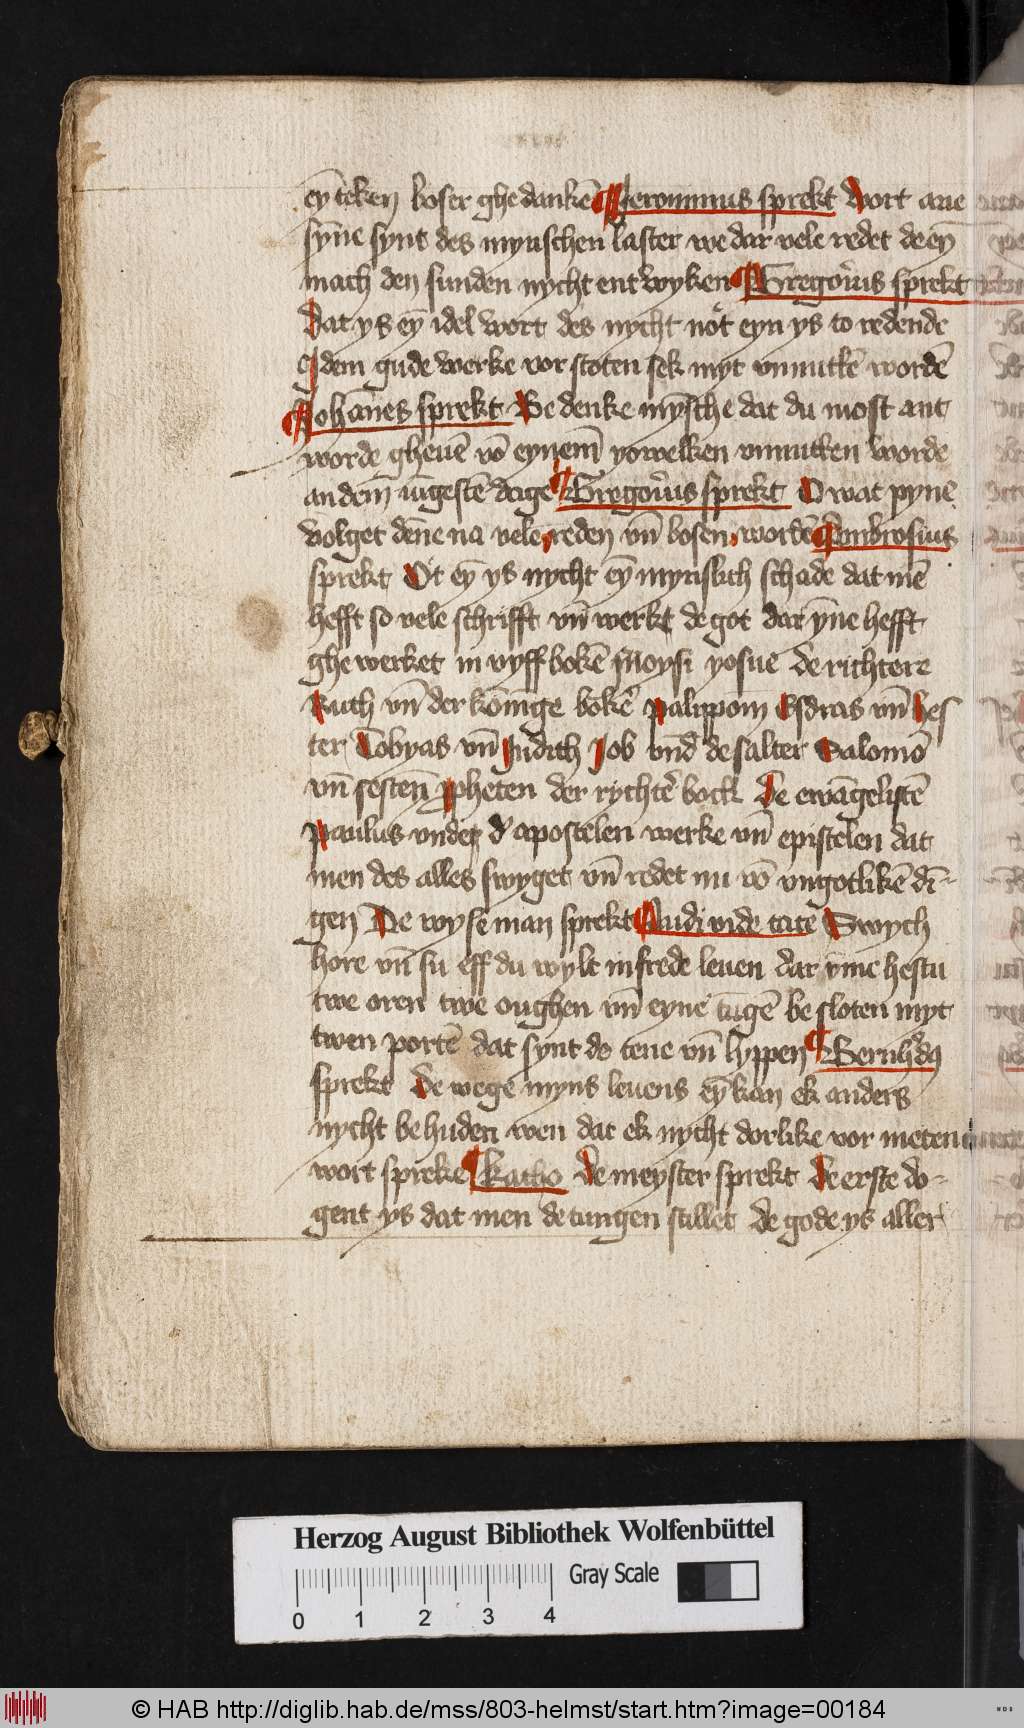 eȳ teken boser ghedankē Jeronimus sprekt Wort ane
sȳne synt des mynschen laster we dar vele redet de eȳ
mach den sunden nycht entwyken Gregorius sprekt
Dat ys eȳ idel wort des nycht not eyn ys to redende
Idem gude werke vor stoten sek myt vnnuttē wordē
Johānes sprekt Bedenke mȳsche dat du most ant
worde gheuē vō eynem yowelken vnnutten worde
an dem iūgestē dage Gregorius sprekt O wat pyne
volget dēne na vele reden vn̄ bosen wordē Ambrosius
sprekt Ot eȳ ys nycht eȳ mynslich schade dat mē
hefft so vele schrifft vn̄ werkt de got dar ȳne hefft
ghewerket in vyff bokē moysi yosue de richtere
Ruth vn̄ der kōninge bokē palippom Esdras vn̄ hes
ter Tobyas vn̄ Judith Job vnd de salter Salomō
vn̄ sesten ꝓpheten der rychtē bock De ewāgelistē
Paulus vnde d' apostelen werke vn̄ epistelen dat
men des alles swyget vn̄ redet nu vō vngotlikē dī-
gen De wyse man sprekt Audi vide tace Swych
hore vn̄ su eff du wylt in frede leuen dar ȳne hestu
twe oren twe oughen vn̄ eyne tūgē besloten myt
twen portē dat synt de tene vn̄ lyppen Bernhdꝯ
sprekt De wege myns leuens eȳ kan ek anders
nycht behuden wen dat ek nycht dorlike vor meten
wort spreke Katho De meyster sprekt De erste do-
gent ys dat men de tungen stillet De gode ys aller
Herzog August Bibliothek Wolfenbüttel
Gray Scale
0 1 2 3 4
© HAB http://diglib.hab.de/mss/803-helmst/start.htm?image=00184